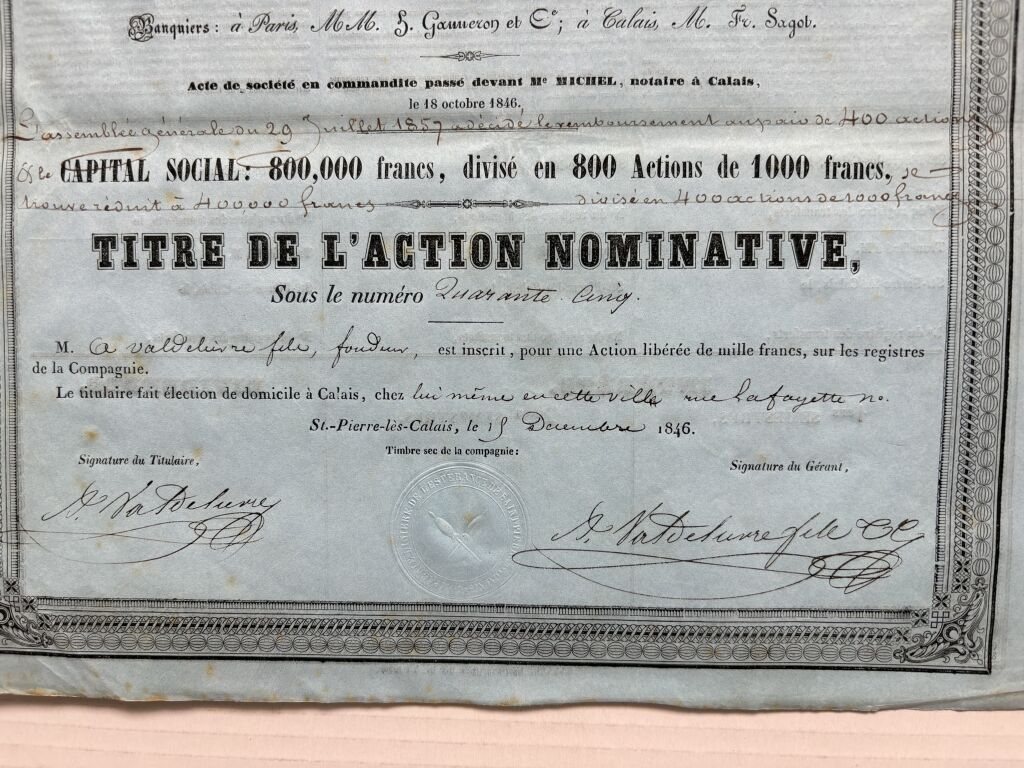 Banquiers : à Paris, MM. H. Ganneron et Cie; à Calais, M. Fr. Sagot.
Acte de société en commandite passé devant Me MICHEL, notaire à Calais,
le 18 octobre 1846.
L'assemblée générale du 29 Juillet 1857 a décidé le remboursement au pair de 400 actions
& le CAPITAL SOCIAL: 800,000 francs, divisé en 800 Actions de 1000 francs., se
trouve réduit à 400,000 francs divisé en 400 actions de 1000 francs
TITRE DE L'ACTION NOMINATIVE,
Sous le numéro Quarante Cinq.
M. A Valdelievre fils, fondeur, est inscrit, pour une Action libérée de mille francs, sur les registres
de la Compagnie.
Le titulaire fait élection de domicile à Calais, chez lui même en cette ville rue Lafayette no.
St.-Pierre-lès-Calais, le 15 Decembre 1846.
Timbre sec de la compagnie:
Signature du Titulaire,
Signature du Gérant,
A. Valdelievre
A. Valdelievre fils & C